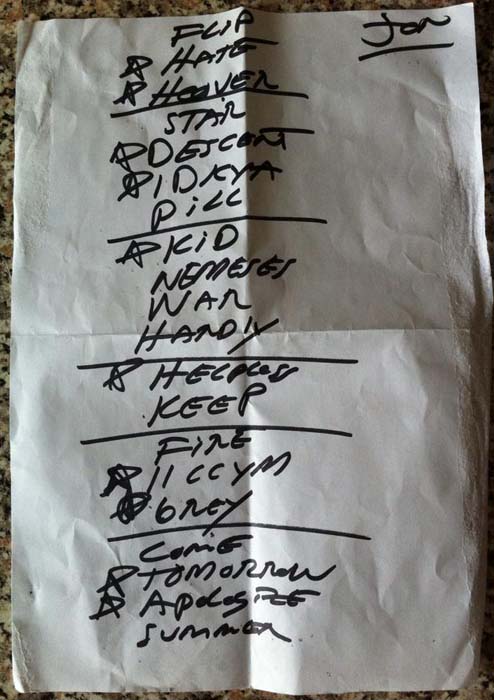 JON
FLIP
☆ HATE
☆ HOOVER
STAR
☆ DESCENT
☆ IDKYA
PILL
☆ KID
NEMESES
WAR
HARDLY
☆ HELPLESS
KEEP
FIRE
☆ IICCYM
☆ GREY
COME
☆ TOMORROW
☆ APOLOGIZE
SUMMER